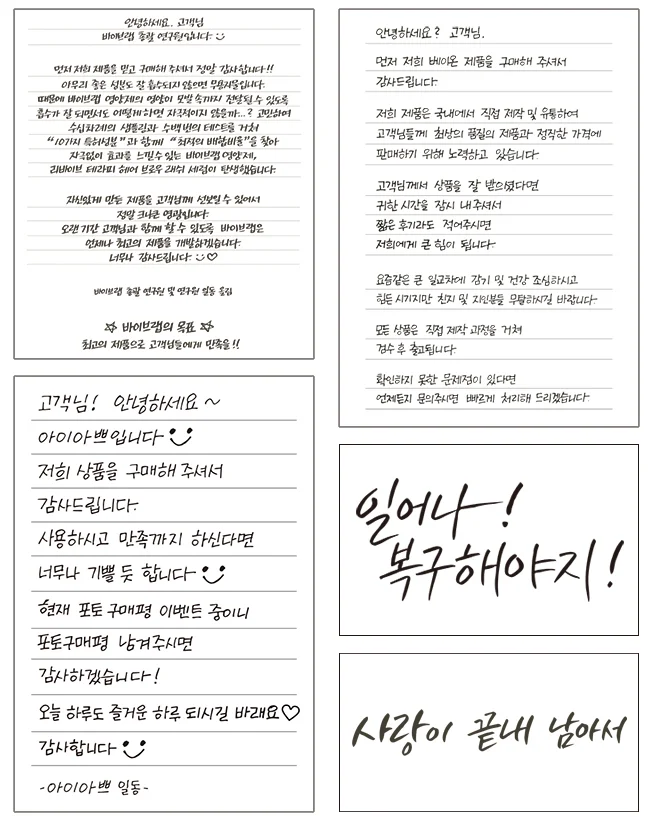 안녕하세요. 고객님
바이브랩 총괄 연구원입니다. ☺
먼저 저희 제품을 믿고 구매해 주셔서 정말 감사합니다!!
아무리 좋은 성분도 잘 흡수되지 않으면 무용지물입니다.
때문에 바이브랩 영양제의 영양이 모발 속까지 전달될 수 있도록
흡수가 잘 되면서도 어떻게 하면 자극적이지 않을까...? 고민하여
수십차례의 샘플링과 수백번의 테스트를 거쳐
"10가지 특허성분"과 함께 "최적의 배합비율"을 찾아
자극없이 효과를 느낄수 있는 바이브랩 영양제,
리바이브 테라피 헤어 브로우 래쉬 세럼이 탄생했습니다.
자신있게 만든 제품을 고객님께 선보일 수 있어서
정말 크나큰 영광입니다.
오랜 기간 고객님과 함께 할 수 있도록 바이브랩은
언제나 최고의 제품을 개발하겠습니다.
너무나 감사드립니다. ☺♡
바이브랩 총괄 연구원 및 연구원 일동 올림
☆ 바이브랩의 목표 ☆
최고의 제품으로 고객님들에게 만족을!!
안녕하세요? 고객님.
먼저 저희 베이온 제품을 구매해 주셔서
감사드립니다.
저희 제품은 국내에서 직접 제작 및 유통하여
고객님들께 최상의 품질의 제품과 정직한 가격에
판매하기 위해 노력하고 있습니다.
고객님께서 상품을 잘 받으셨다면
귀한 시간을 잠시 내주셔서
짧은 후기라도 적어주시면
저희에게 큰 힘이 됩니다.
요즘같은 큰 일교차에 감기 및 건강 조심하시고
힘든 시기지만 친지 및 지인분들 무탈하시길 바랍니다.
모든 상품은 직접 제작 과정을 거쳐
검수 후 출고됩니다.
확인하지 못한 문제점이 있다면
언제든지 문의주시면 빠르게 처리해 드리겠습니다.
고객님! 안녕하세요~
아이아쁘입니다 ☺
저희 상품을 구매해 주셔서
감사드립니다.
사용하시고 만족까지 하신다면
너무나 기쁠 듯 합니다 ☺
현재 포토 구매평 이벤트 중이니
포토구매평 남겨주시면
감사하겠습니다!
오늘 하루도 즐거운 하루 되시길 바래요♡
감사합니다 ☺
-아이아쁘 일동-
일어나!
복구해야지!
사랑이 끝내 남아서